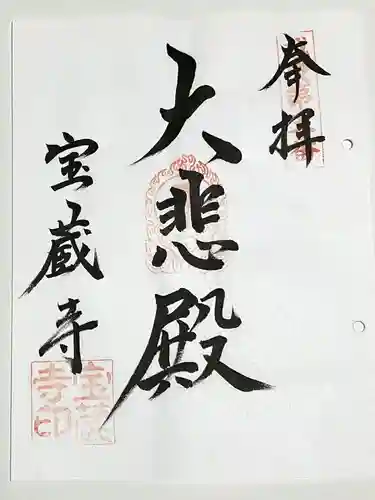 奉拝
大悲殿
宝蔵寺
宝蔵寺印